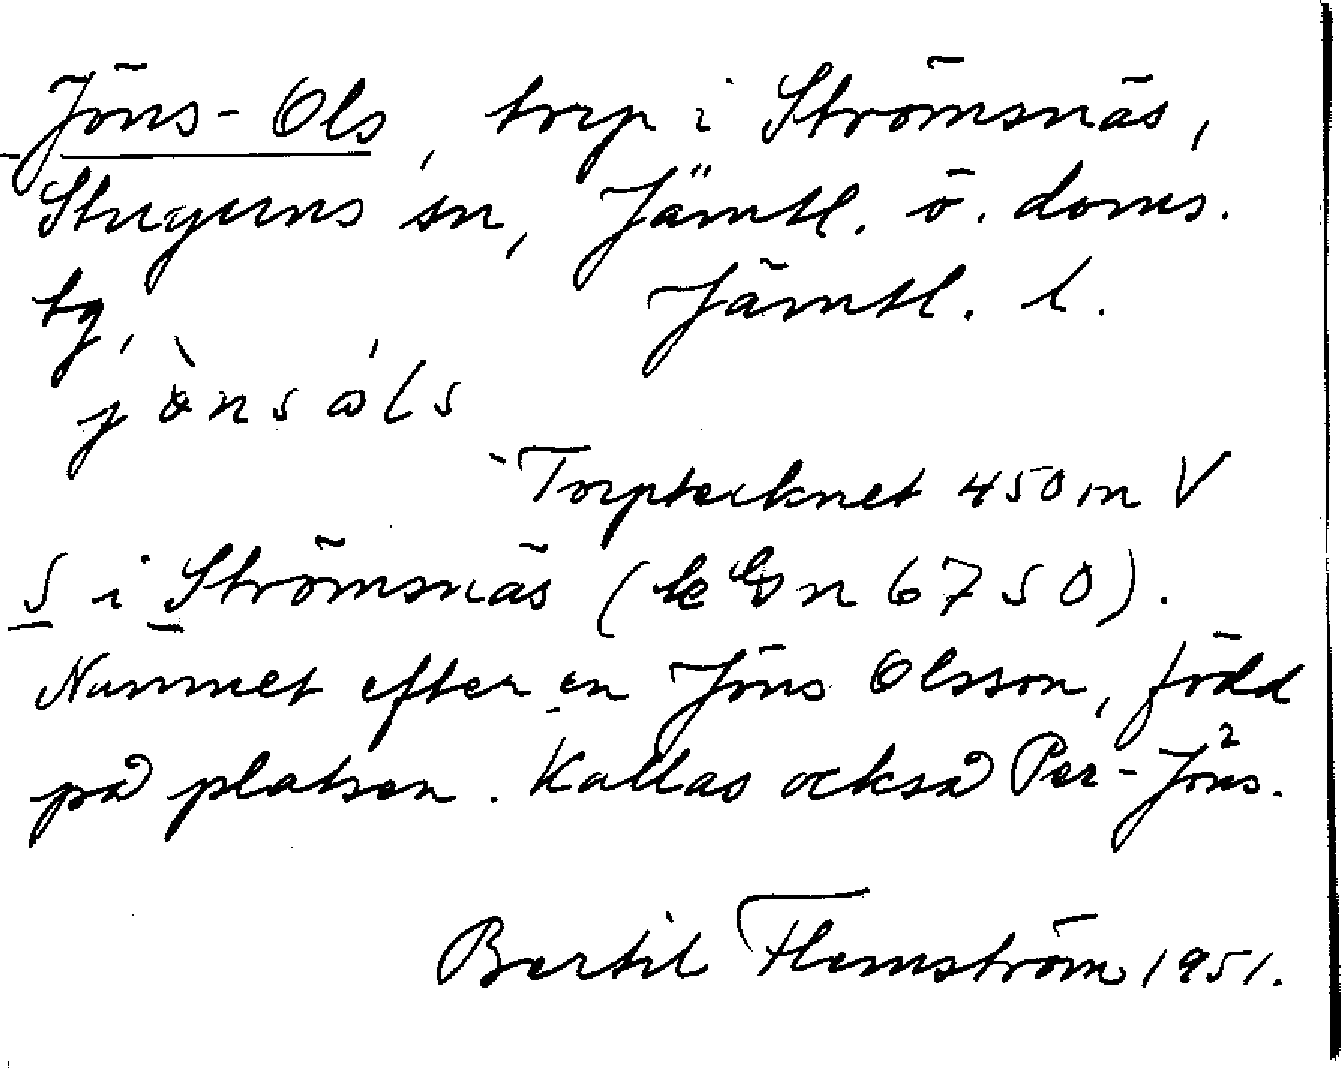 Jöns-Ols, torp i Strömsnäs,
Stuguns sn, Jämtl. ö. doms.
tg, Jämtl. l.
jö̀nsóls
Torptecknet 450 m V
S i Strömsnäs (n 6750).
Namnet efter en Jöns Olsson, född
på platsen. Kallas också Per-Jöns.
Bertil Flemström 1951.